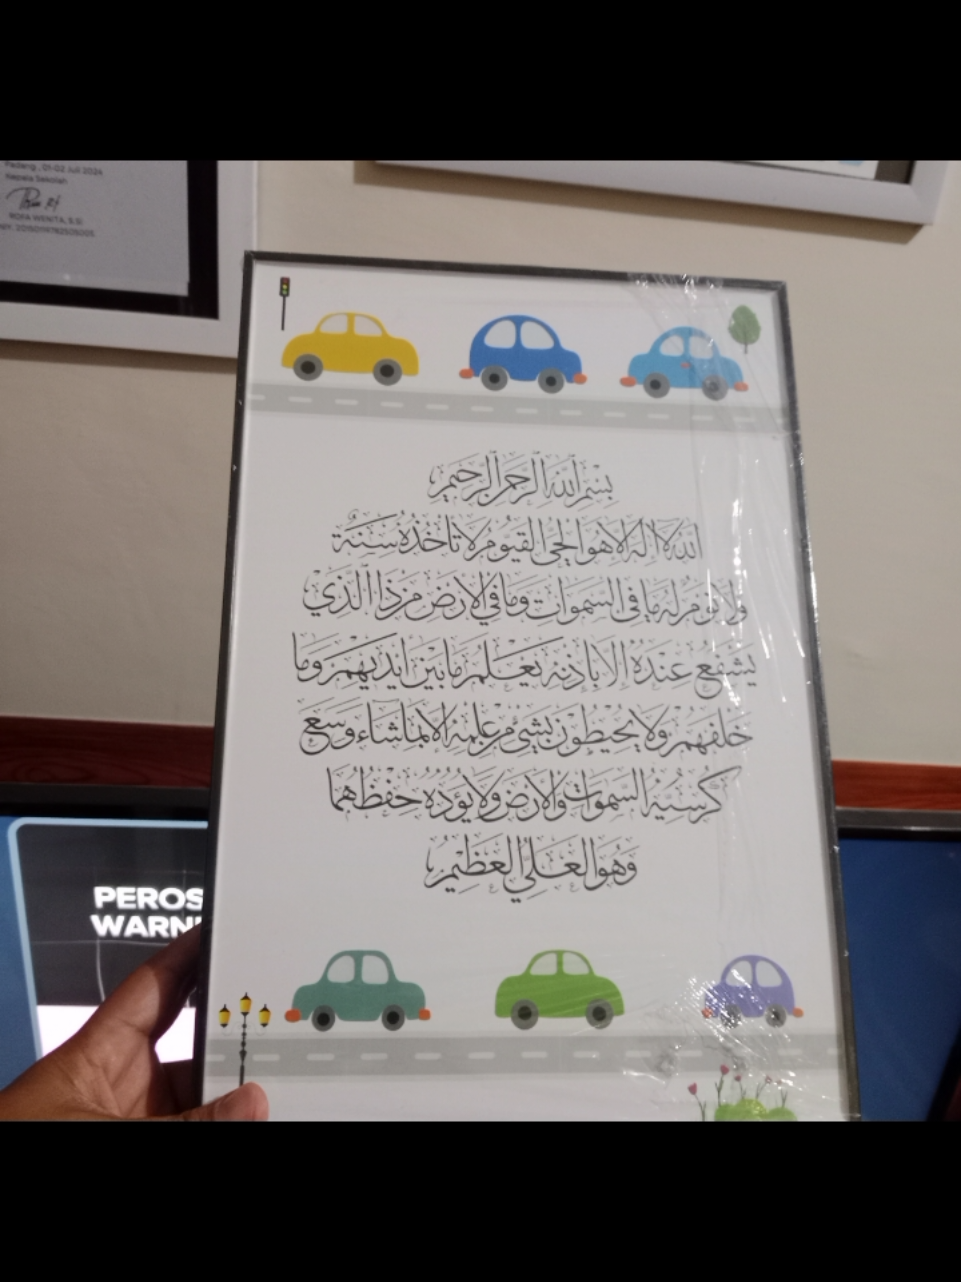 Padang, 01-02 Juli 2024
Kepala Sekolah
ROFA WENITA, S.Si
بِسْمِ ٱللَّهِ ٱلرَّحْمَنِ ٱلرَّحِيمِ
اللهُ لَا إِلَهَ إِلَّا هُوَ الْحَيُّ الْقَيُّومُ لَا تَأْخُذُهُ سِنَةٌ
وَلَا نَوْمٌ لَهُ مَا فِي السَّمَوَاتِ وَمَا فِي الْأَرْضِ مَنْ ذَا الَّذِي
يَشْفَعُ عِنْدَهُ إِلَّا بِإِذْنِهِ يَعْلَمُ مَا بَيْنَ أَيْدِيهِمْ وَمَا
خَلْفَهُمْ وَلَا يُحِيطُونَ بِشَيْءٍ مِنْ عِلْمِهِ إِلَّا بِمَا شَاءَ وَسِعَ
كُرْسِيُّهُ السَّمَوَاتِ وَالْأَرْضَ وَلَا يَؤُدُهُ حِفْظُهُمَا
وَهُوَ الْعَلِيُّ الْعَظِيمُ
PEROS
WARN